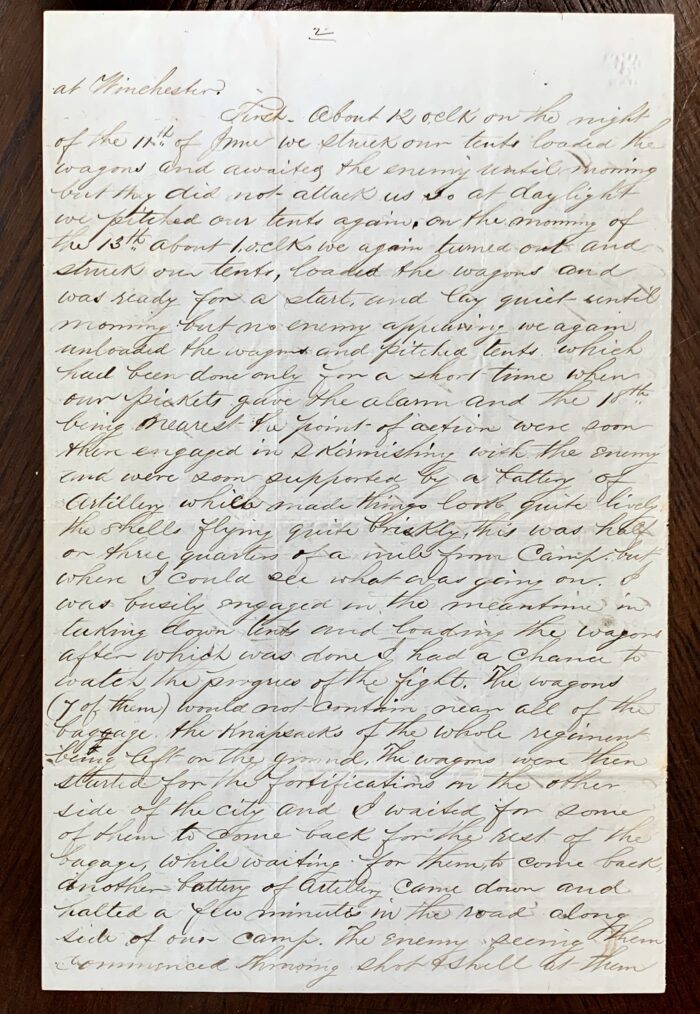 2
at Winchester.
First- About 12 oclk on the night
of the 11th of June we struck our tents loaded the
wagons and awaited the enemy until morning
but they did not attack us so at daylight
we pitched our tents again, on the morning of
the 13th about 1 oclk we again turned out and
struck our tents, loaded the wagons and
was ready for a start, and lay quiet until
morning but no enemy appearing we again
unloaded the wagons and pitched tents which
had been done only for a short time when
our pickets gave the alarm and the 18th
being nearest the point of action were soon
there engaged in Skirmishing with the enemy
and were soon supported by a battery of
Artillery which made things look quite lively
the shells flying quite briskly, this was half
or three quarters of a mile from Camp. but
where I could see what was going on. I
was busily engaged in the meantime in
taking down tents and loading the wagons
after which was done I had a chance to
watch the progress of the fight. The wagons
(7 of them) would not contain near all of the
baggage. the knapsacks of the whole regiment
being left on the ground. The wagons were then
started for the fortifications on the other
side of the city and I waited for some
of them to come back for the rest of the
bagage, while waiting for them to come back,
another battery of Artillery came down and
halted a few minutes in the road along
side of our camp. The enemy seeing them
commenced throwing shot & shell at them